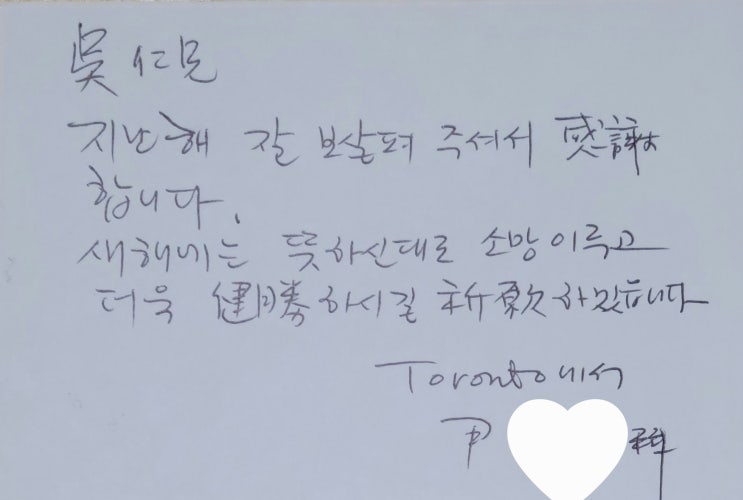 吳 仁兄
지난해 잘 보살펴 주셔서 感謝
합니다.
새해에는 뜻하신대로 소망이루고
더욱 健勝하시길 祈願하겠습니다
Toronto에서
尹